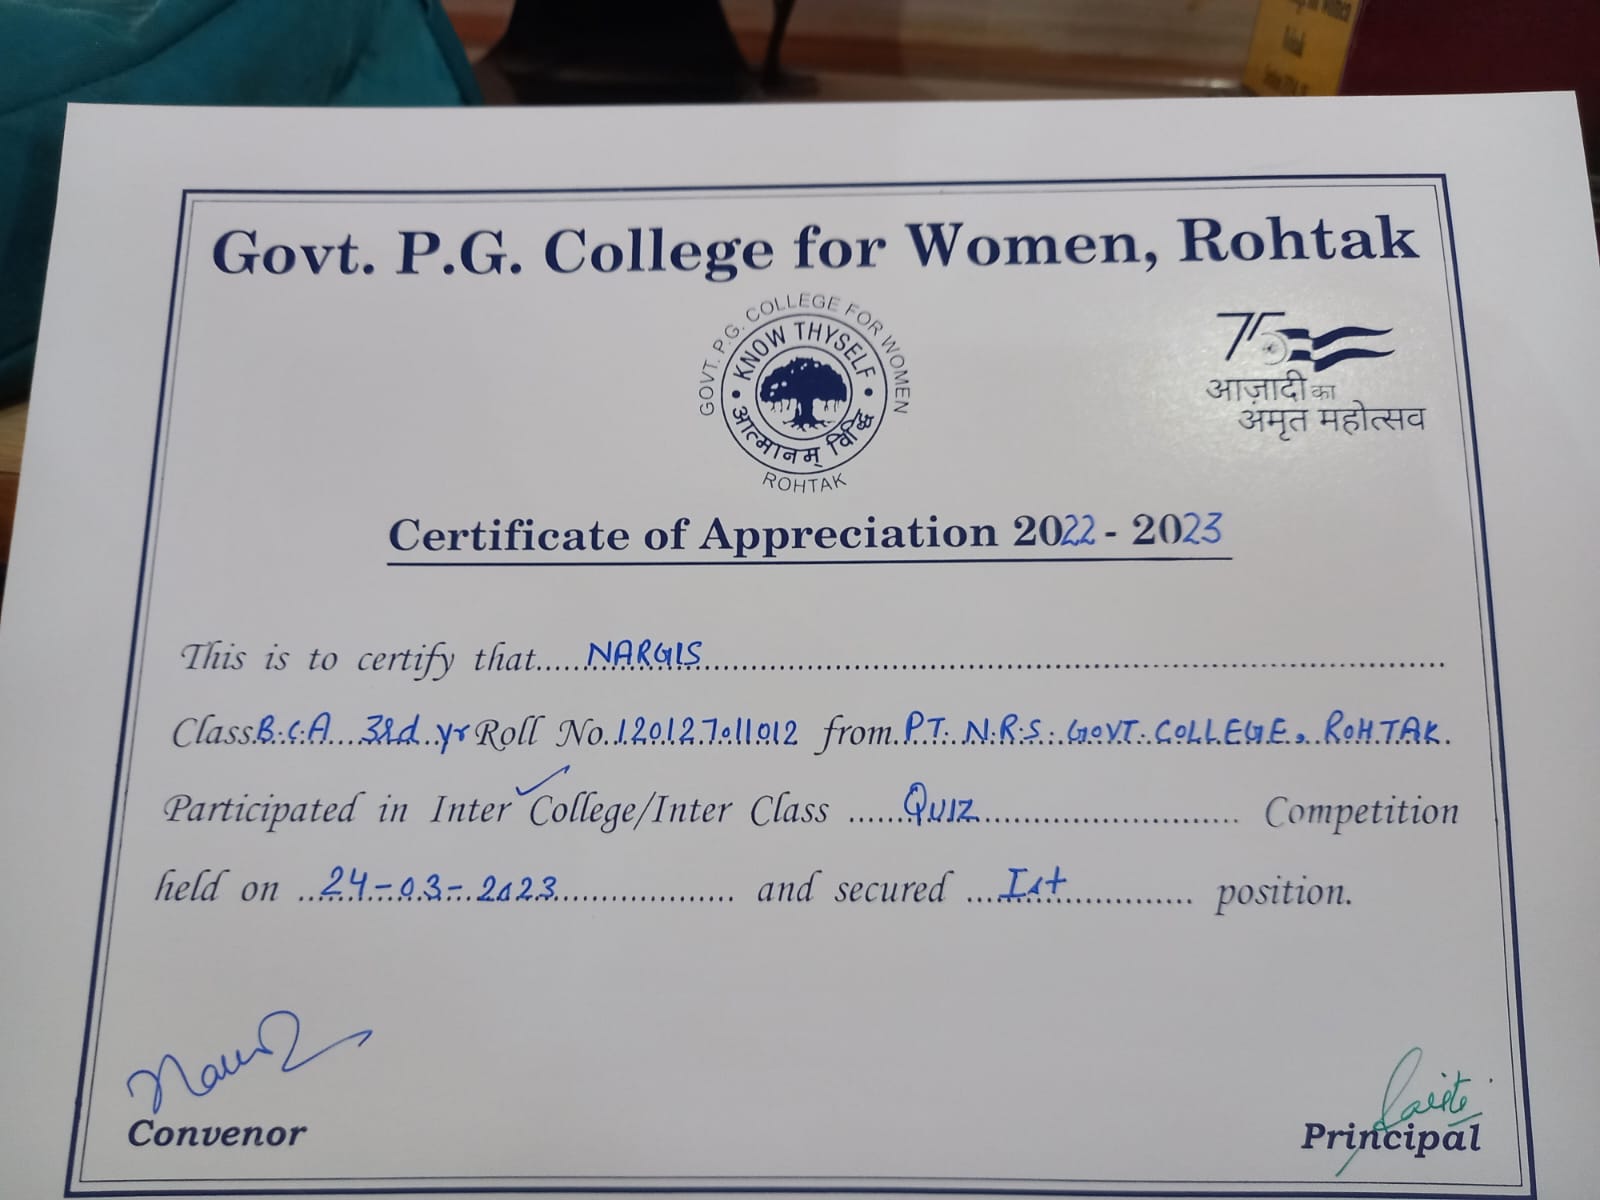 Govt. P.G. College for Women, Rohtak
GOVT. P.G. COLLEGE FOR WOMEN
KNOW THYSELF
आत्मानम् विद्धि
ROHTAK
75
आज़ादी का
अमृत महोत्सव
Certificate of Appreciation 2022 - 2023
This is to certify that.....NARGIS
Class B.C.A 3rd yr Roll No. 120127011012 from PT. N.R.S. GOVT. COLLEGE, ROHTAK.
Participated in Inter College/Inter Class ......QUIZ...... Competition
held on ...24-03-2023... and secured ....Ist.... position.
Convenor
Principal